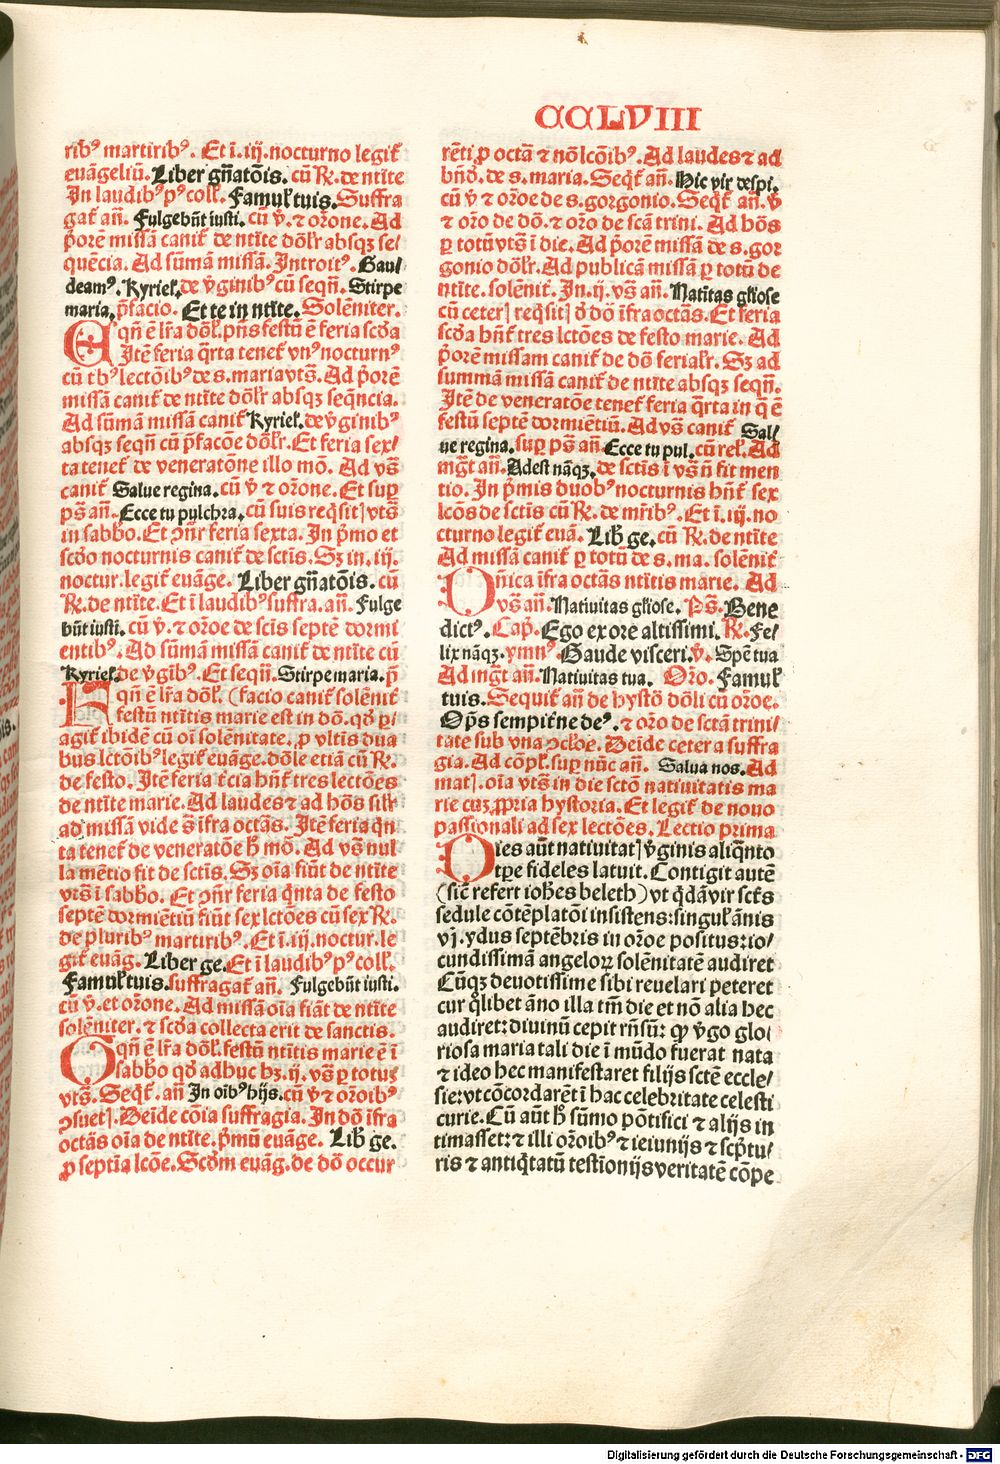 CCLVIII
ribꝰ martiribꝰ. Et ī .iij. nocturno legit͛
euāgeliū. Liber gn̄atōis. cū ℟. de nt̄ite
In laudibꝰ pꝰ coll̄. Famul̄ tuis. Suffra
gat͛ añ. Fulgebūt iusti. cū ꝟ. ⁊ or̄one. Ad
p̄orē missā canit͛ de nt̄ite dōl̄r absqꝫ se⸗
quēcia. Ad sūmā missā. Introitꝰ. Gau⸗
deamꝰ. Kyriel̄. de ꝟginibꝰ cū seqn̄. Stirpe
maria. p̄facio. Et te in nt̄ite. Solēniter.
Eqn̄ ē lr̄a dōl̄. pn̄s festū ē feria scd̄a
Itē feria q̄rta tenet͛ vnꝰ nocturnꝰ
cū tbꝰ lectōibꝰ de s. maria vts̄. Ad p̄orē
missā canit͛ de nt̄ite dōl̄r absqꝫ seq̄ncia.
Ad sūmā missā canit͛ Kyriel̄. de ꝟginibꝰ
absqꝫ seqn̄ cū p̄facōe dōl̄r. Et feria sex⸗
ta tenet͛ de veneratōne illo mō. Ad vs̄
canit͛ Salue regina. cū ꝟ ⁊ or̄one. Et suꝑ
ps̄ añ. Ecce tu pulchra. cū suis reqsitꝭ vts̄
in sabbō. Et ꝯn̄r feria sexta. In p̄mo et
scd̄o nocturnis canit͛ de sctīs. Sꝫ in .iij.
noctur. legit͛ euāge. Liber gn̄atōis. cū
℟. de nt̄ite. Et ī laudibꝰ suffra. añ. Fulge
būt iusti. cū ꝟ. ⁊ or̄oe de sc̄is septē dormi
entibꝰ. Ad sūmā missā canit͛ de nt̄ite cū
Kyriel̄. de ꝟgībꝰ. Et seqn̄. Stirpe maria. p̄
Eqn̄ ē lr̄a dōl̄. (facio canit͛ solēnit͛
festū nt̄itis marie est in dō. qd̓ ꝑ⸗
agit͛ ibidē cū oī solēnitate. ꝓ vltīs dua
bus lctōibꝰ legit͛ euāge. dōle etiā cū ℟.
de festo. Itē feria t̄cia hn̄t͛ tres lectōes
de nt̄ite marie. Ad laudes ⁊ ad hōs sil̄r
ad missā vide s̄ īfra octās. Itē feria q̄n
ta tenet͛ de veneratōe hͦ mō. Ad vs̄ nul
la mētio fit de sctīs. Sꝫ oīa fiūt de nt̄ite
vt̄s ī sabbō. Et ꝯn̄r feria q̄nta de festo
septē dormiētiū fiūt sex lctōes cū sex ℟.
de pluribꝰ martiribꝰ. Et ī .iij. noctur. le
git͛ euāg. Liber ge. Et ī laudibꝰ pꝰ coll̄.
Famul̄ tuis. suffragat͛ añ. Fulgebūt iusti.
cū ꝟ. et or̄one. Ad missā oīa fiāt de nt̄ite
solēniter. ⁊ scd̄a collecta erit de sanctis.
Gqn̄ ē lr̄a dōl̄. festū nt̄itis marie ē ī
sabbō qd̓ adhuc hꝫ .ij. vs̄ ꝑ totuꝫ
vts̄. Seqt͛. añ In oībꝰ hijs. cū ꝟ ⁊ or̄oibꝰ
ꝯsuetꝭ. Deīde cōīa suffragia. In dō īfra
octās oīa de nt̄ite. p̄mū euāge. Lib̄ ge.
ꝓ septīa lcōe. Scd̄m euāg. de dō occur
rēti ꝓ octā ⁊ nō lcōibꝰ. Ad laudes ⁊ ad
bn̄d̄. de s. maria. Seqt͛ añ. Hic vir despi.
cū ꝟ ⁊ or̄oe de s. gorgonio. Seqt͛ añ. ꝟ
⁊ or̄o de dō. ⁊ or̄o de scā trini. Ad hōs
ꝑ totū vts̄ ī die. Ad p̄orē missā de s. gor
gonio dōl̄r. Ad publicā missā ꝑ totū de
nt̄ite. solēnit͛. In .ij. vs̄ añ. Natiītas gl̄iose
cū ceterꝭ reqsitꝭ ō dō īfra octās. Et feria
scd̄a hn̄t͛ tres lctōes de festo marie. Ad
p̄orē missam canit͛ de dō ferial̄r. Sꝫ ad
summā missā canit͛ de nt̄ite absqꝫ seqn̄.
Itē de veneratōe tenet͛ feria q̄rta in q̄ ē
festū septē dormiētiū. Ad vs̄ canit͛ Sal⸗
ue regina. suꝑ ps̄ añ Ecce tu pul. cū rel̄. Ad
mgt̄ añ. Adest nāqꝫ. de sctīs ī vs̄ n̄ fit men
tio. In p̄mis duobꝰ nocturnis hn̄t͛ sex
lcōs de sctīs cū ℟. de mr̄ibꝰ. Et ī .iij. no
cturno legit͛ euā. Lib̄ ge. cū ℟. de nt̄ite
Ad missā canit͛ ꝑ totū de s. ma. solēnit͛
Dn̄ica īfra octās nt̄itis marie. Ad
vs̄ añ. Natiuitas gl̄iose. Ps̄. Bene
dictꝰ. Cap̄. Ego ex ore altissimi. ℟. Fe⸗
lix nāqꝫ. ymnꝰ. Gaude visceri. ꝟ. Spē tua
Ad mgt̄ añ. Natiuitas tua. Or̄o. Famul̄
tuis. Sequit͛ añ de hystō dōli cū or̄oe.
Op̄s sempit͛ne deꝰ. ⁊ or̄o de sctā trini⸗
tate sub vna ꝯclōe. Deīde cetera suffra
gia. Ad cōpl̄. suꝑ nūc añ. Salua nos. Ad
matꝭ. oīa vts̄ in die sctō natiuitatis ma
rie cuꝫ ꝓpria hystoria. Et legit͛ de nouo
passionali ad sex lectōes. Lectio prima
Dies aūt natiuitatꝭ ꝟginis aliq̄nto
tp̄e fideles latuit. Contigit autē
(sic̄ refert ioh̄es beleth) vt q̄dā vir sct̄s
sedule cōtēplatōi insistens: singul̄ ānis
vj. ydus septēbris in or̄oe positus: io⸗
cundissimā angeloꝝ solēnitatē audiret
Cūqꝫ deuotissime sibi reuelari peteret
cur q̄libet āno illa tm̄ die et nō alia hec
audiret: diuinū cepit rn̄sū: ꝙ ꝟgo glo⸗
riosa maria tali die ī mūdo fuerat nata
⁊ ideo hec manifestaret filijs sctē eccle⸗
sie: vt cōcordarēt ī hac celebritate celesti
curie. Cū aūt hͦ sūmo pōtifici ⁊ alijs in
timasset: ⁊ illi or̄oibꝰ ⁊ ieiunijs ⁊ scp̄tu⸗
ris ⁊ antiq̄tatū testīonijs veritatē cōpe
Digitalisierung gefördert durch die Deutsche Forschungsgemeinschaft - DFG